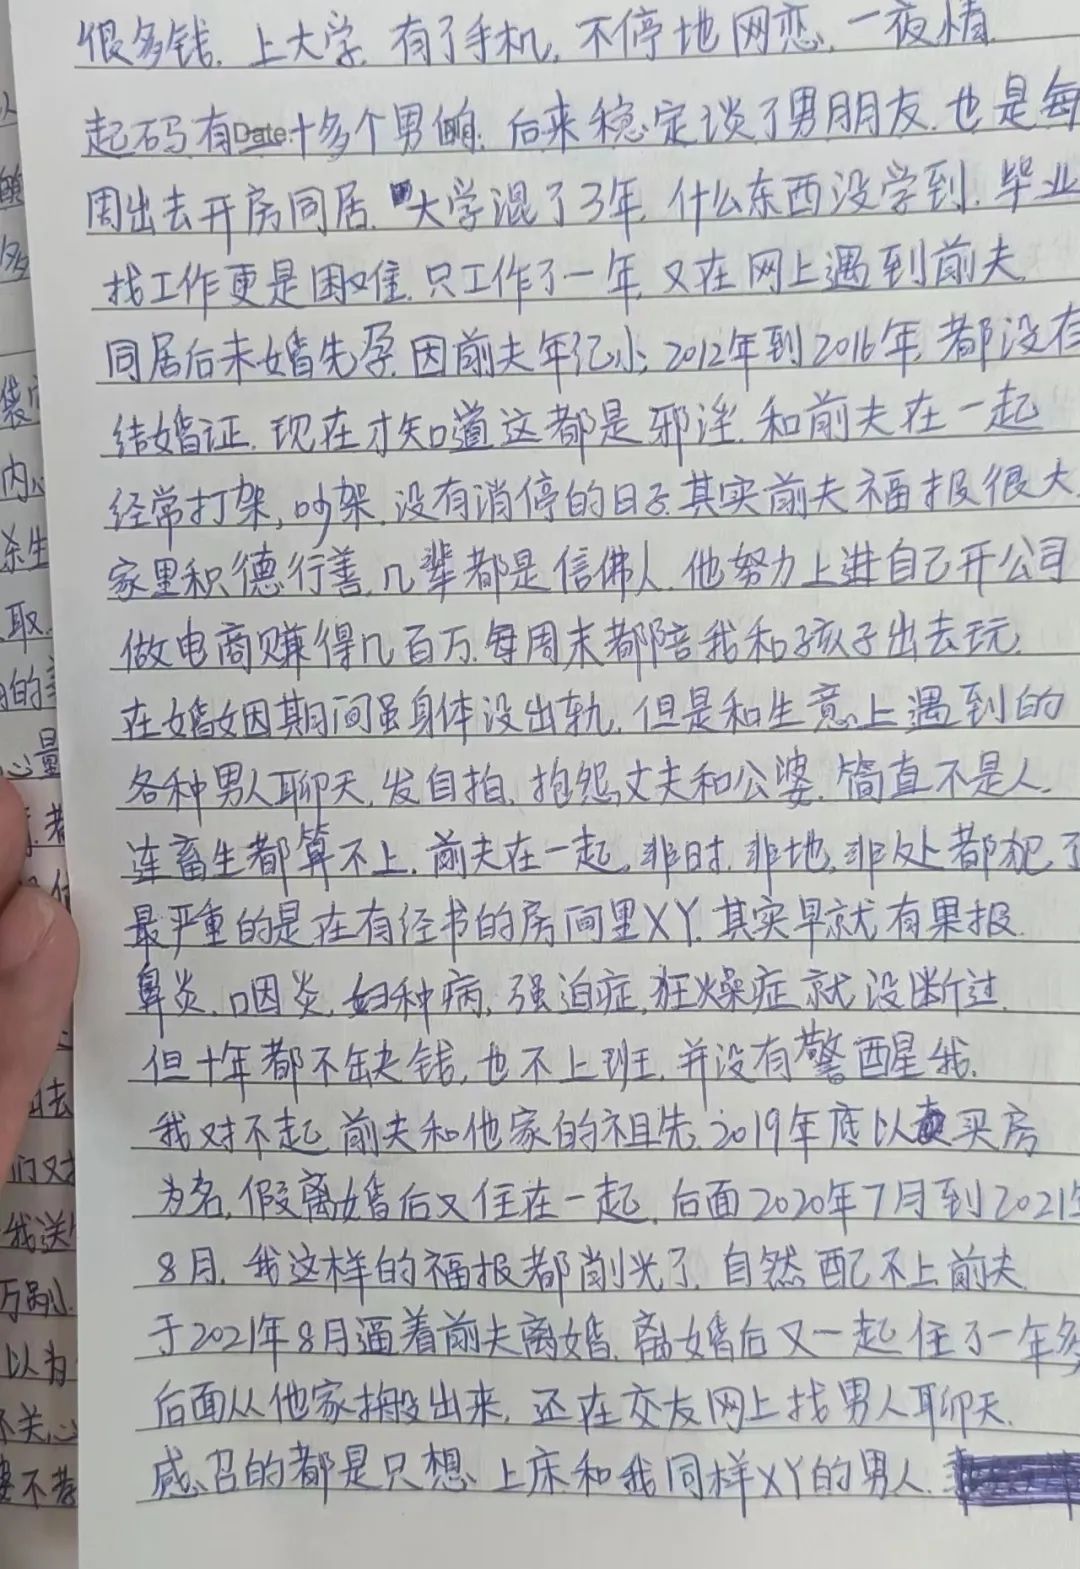 很多钱. 上大学. 有了手机, 不停地网恋. 一夜情.
起码有Date十多个男的. 后来稳定谈了男朋友. 也是每
周出去开房同居. 大学混了3年. 什么东西没学到. 毕业
找工作更是困难. 只工作了一年. 又在网上遇到前夫.
同居后未婚先孕. 因前夫年纪小, 2012年到2016年. 都没有
结婚证. 现在才知道这都是邪淫. 和前夫在一起
经常打架, 吵架. 没有消停的日子. 其实前夫福报很大.
家里积德行善. 几辈都是信佛人. 他努力上进自己开公司
做电商赚得几百万. 每周末都陪我和孩子出去玩.
在婚姻期间虽身体没出轨. 但是和生意上遇到的
各种男人聊天. 发自拍. 抱怨丈夫和公婆. 简直不是人.
连畜生都算不上. 前夫在一起. 非时. 非地. 非处都犯了
最严重的是在有经书的房间里XY. 其实早就有果报.
鼻炎. 咽炎. 妇种病, 强迫症. 狂燥症就没断过.
但十年都不缺钱, 也不上班. 并没有警醒我.
我对不起前夫和他家的祖先. 2019年底以买房
为名. 假离婚后又住在一起. 后面2020年7月到2021年
8月. 我这样的福报都削光了. 自然配不上前夫.
于2021年8月逼着前夫离婚. 离婚后又一起住了一年多
后面从他家搬出来. 还在交友网上找男人聊天.
感召的都是只想上床和我同样XY的男人.